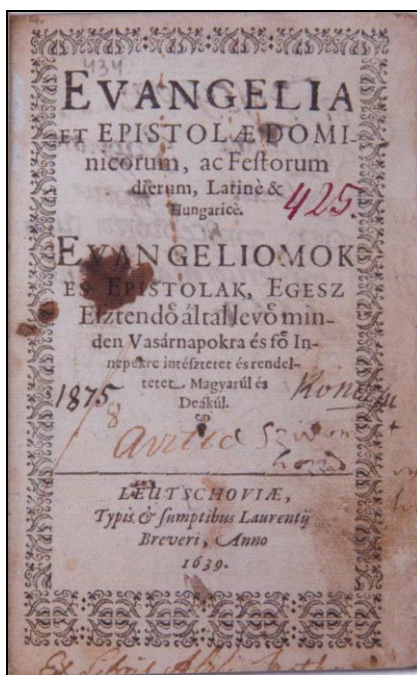 434
EVANGELIA
ET EPISTOLÆ DOMI-
nicorum, ac Feſtorum
dierum, Latinè &
Hungaricè.
425.
EVANGELIOMOK
ES EPISTOLAK, EGESZ
Eſztendő által levő min-
den Vasárnapokra és fő In-
nepekre intéſztetet és rendel-
tetet Magyarúl és
Deákúl.
1875
8
LEUTSCHOVIÆ,
Typis & ſumptibus Laurentij
Breveri, Anno
1639.